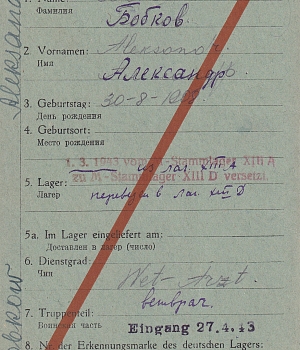 Фамилия
Бобков
2. Vornamen: Aleksandr
Имя
Александр
3. Geburtstag: 30-8-
День рождения
4. Geburtsort:
Место рождения
1. 3. 1943 vom M.-Stammlager XIII A
из лаг. XIII A
zu M.-Stammlager XIII D versetzt.
5. Lager:
Лагерь
переведен в лаг. XIII D
5a. Im Lager eingeliefert am:
Доставлен в лагерь (число)
6. Dienstgrad:
Чин
Wet-Arzt
ветврач.
7. Truppenteil:
Воинская часть
Eingang 27.4.43
8. No der Erkennungsmarke des deutschen Lagers: